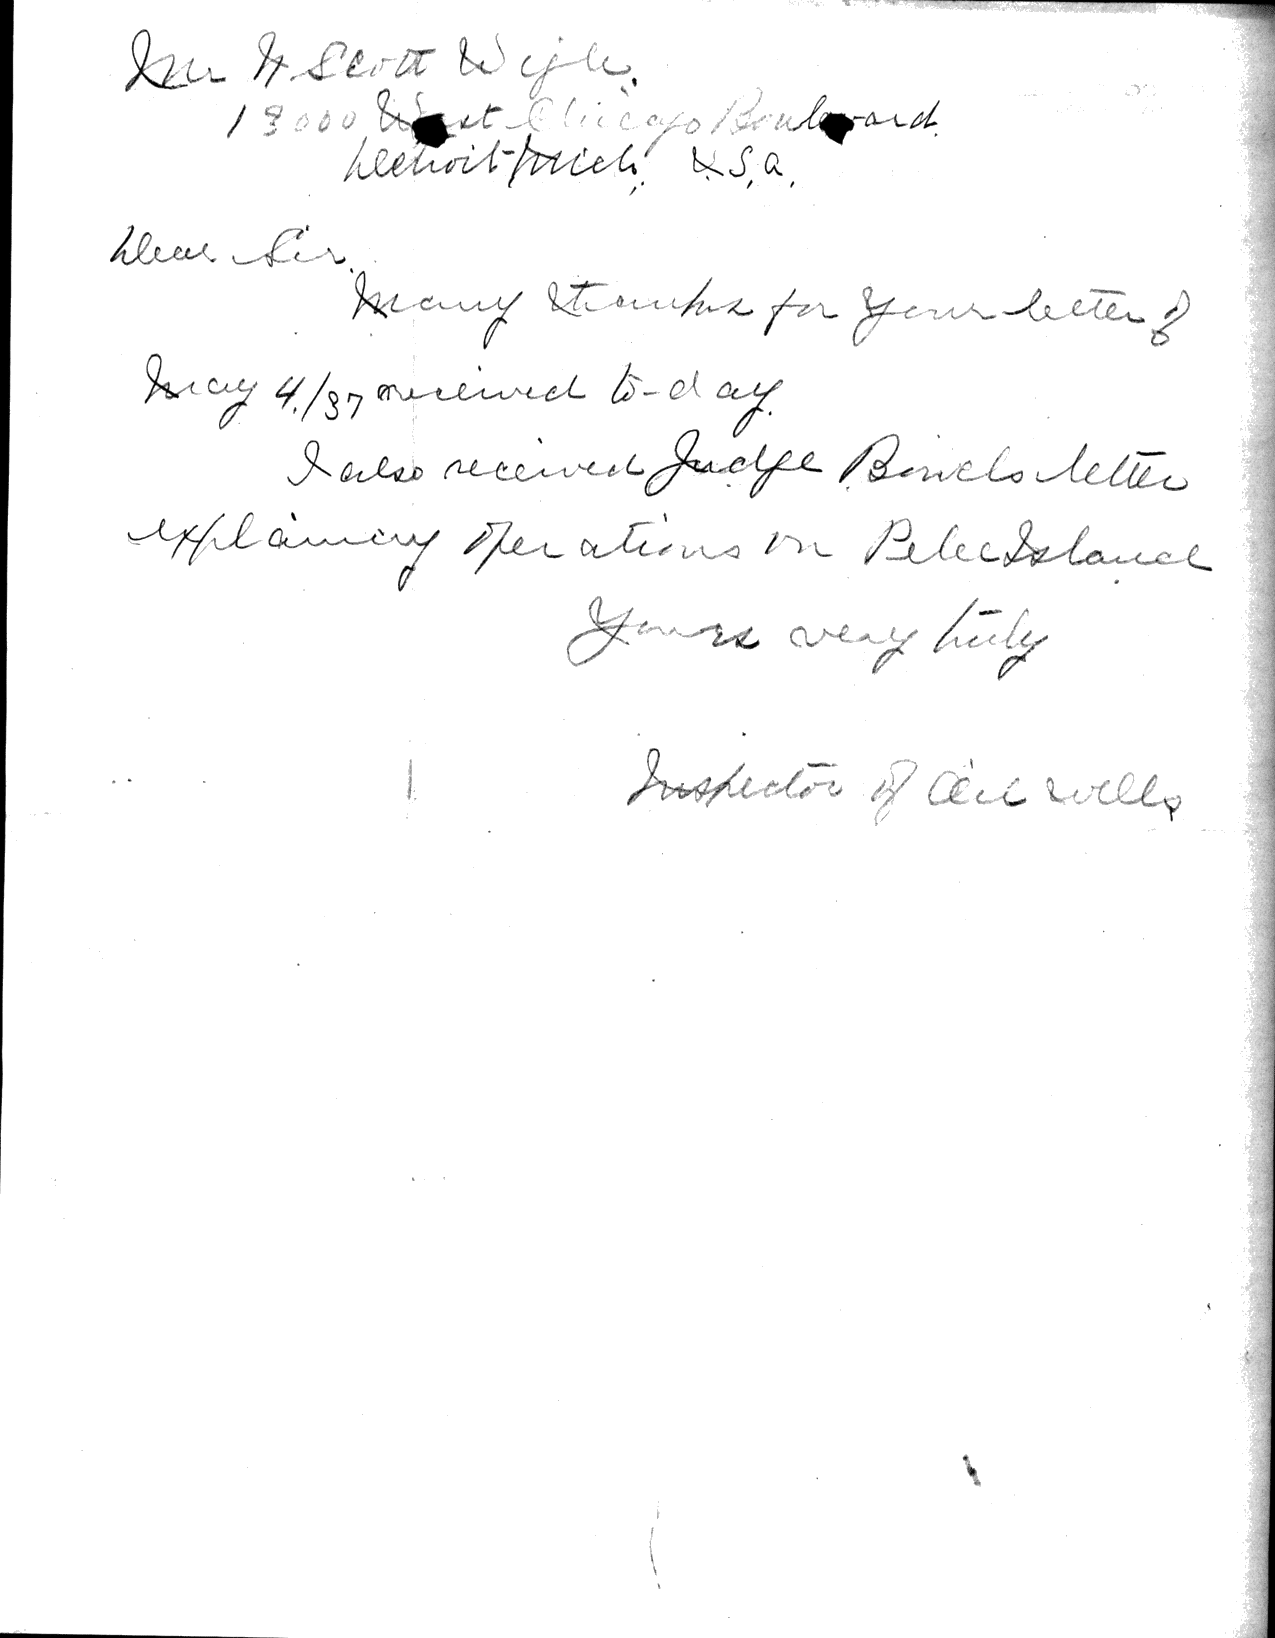 Mr H Scott Wigle.
13000 West Chicago Boulevard.
Detroit Mich. U.S.A.
Dear Sir.
Many thanks for your letter of
May 4./37 received to-day.
I also received Judge letter
explaining operations on Pelee Island
Yours very truly
Inspector of Oil wells